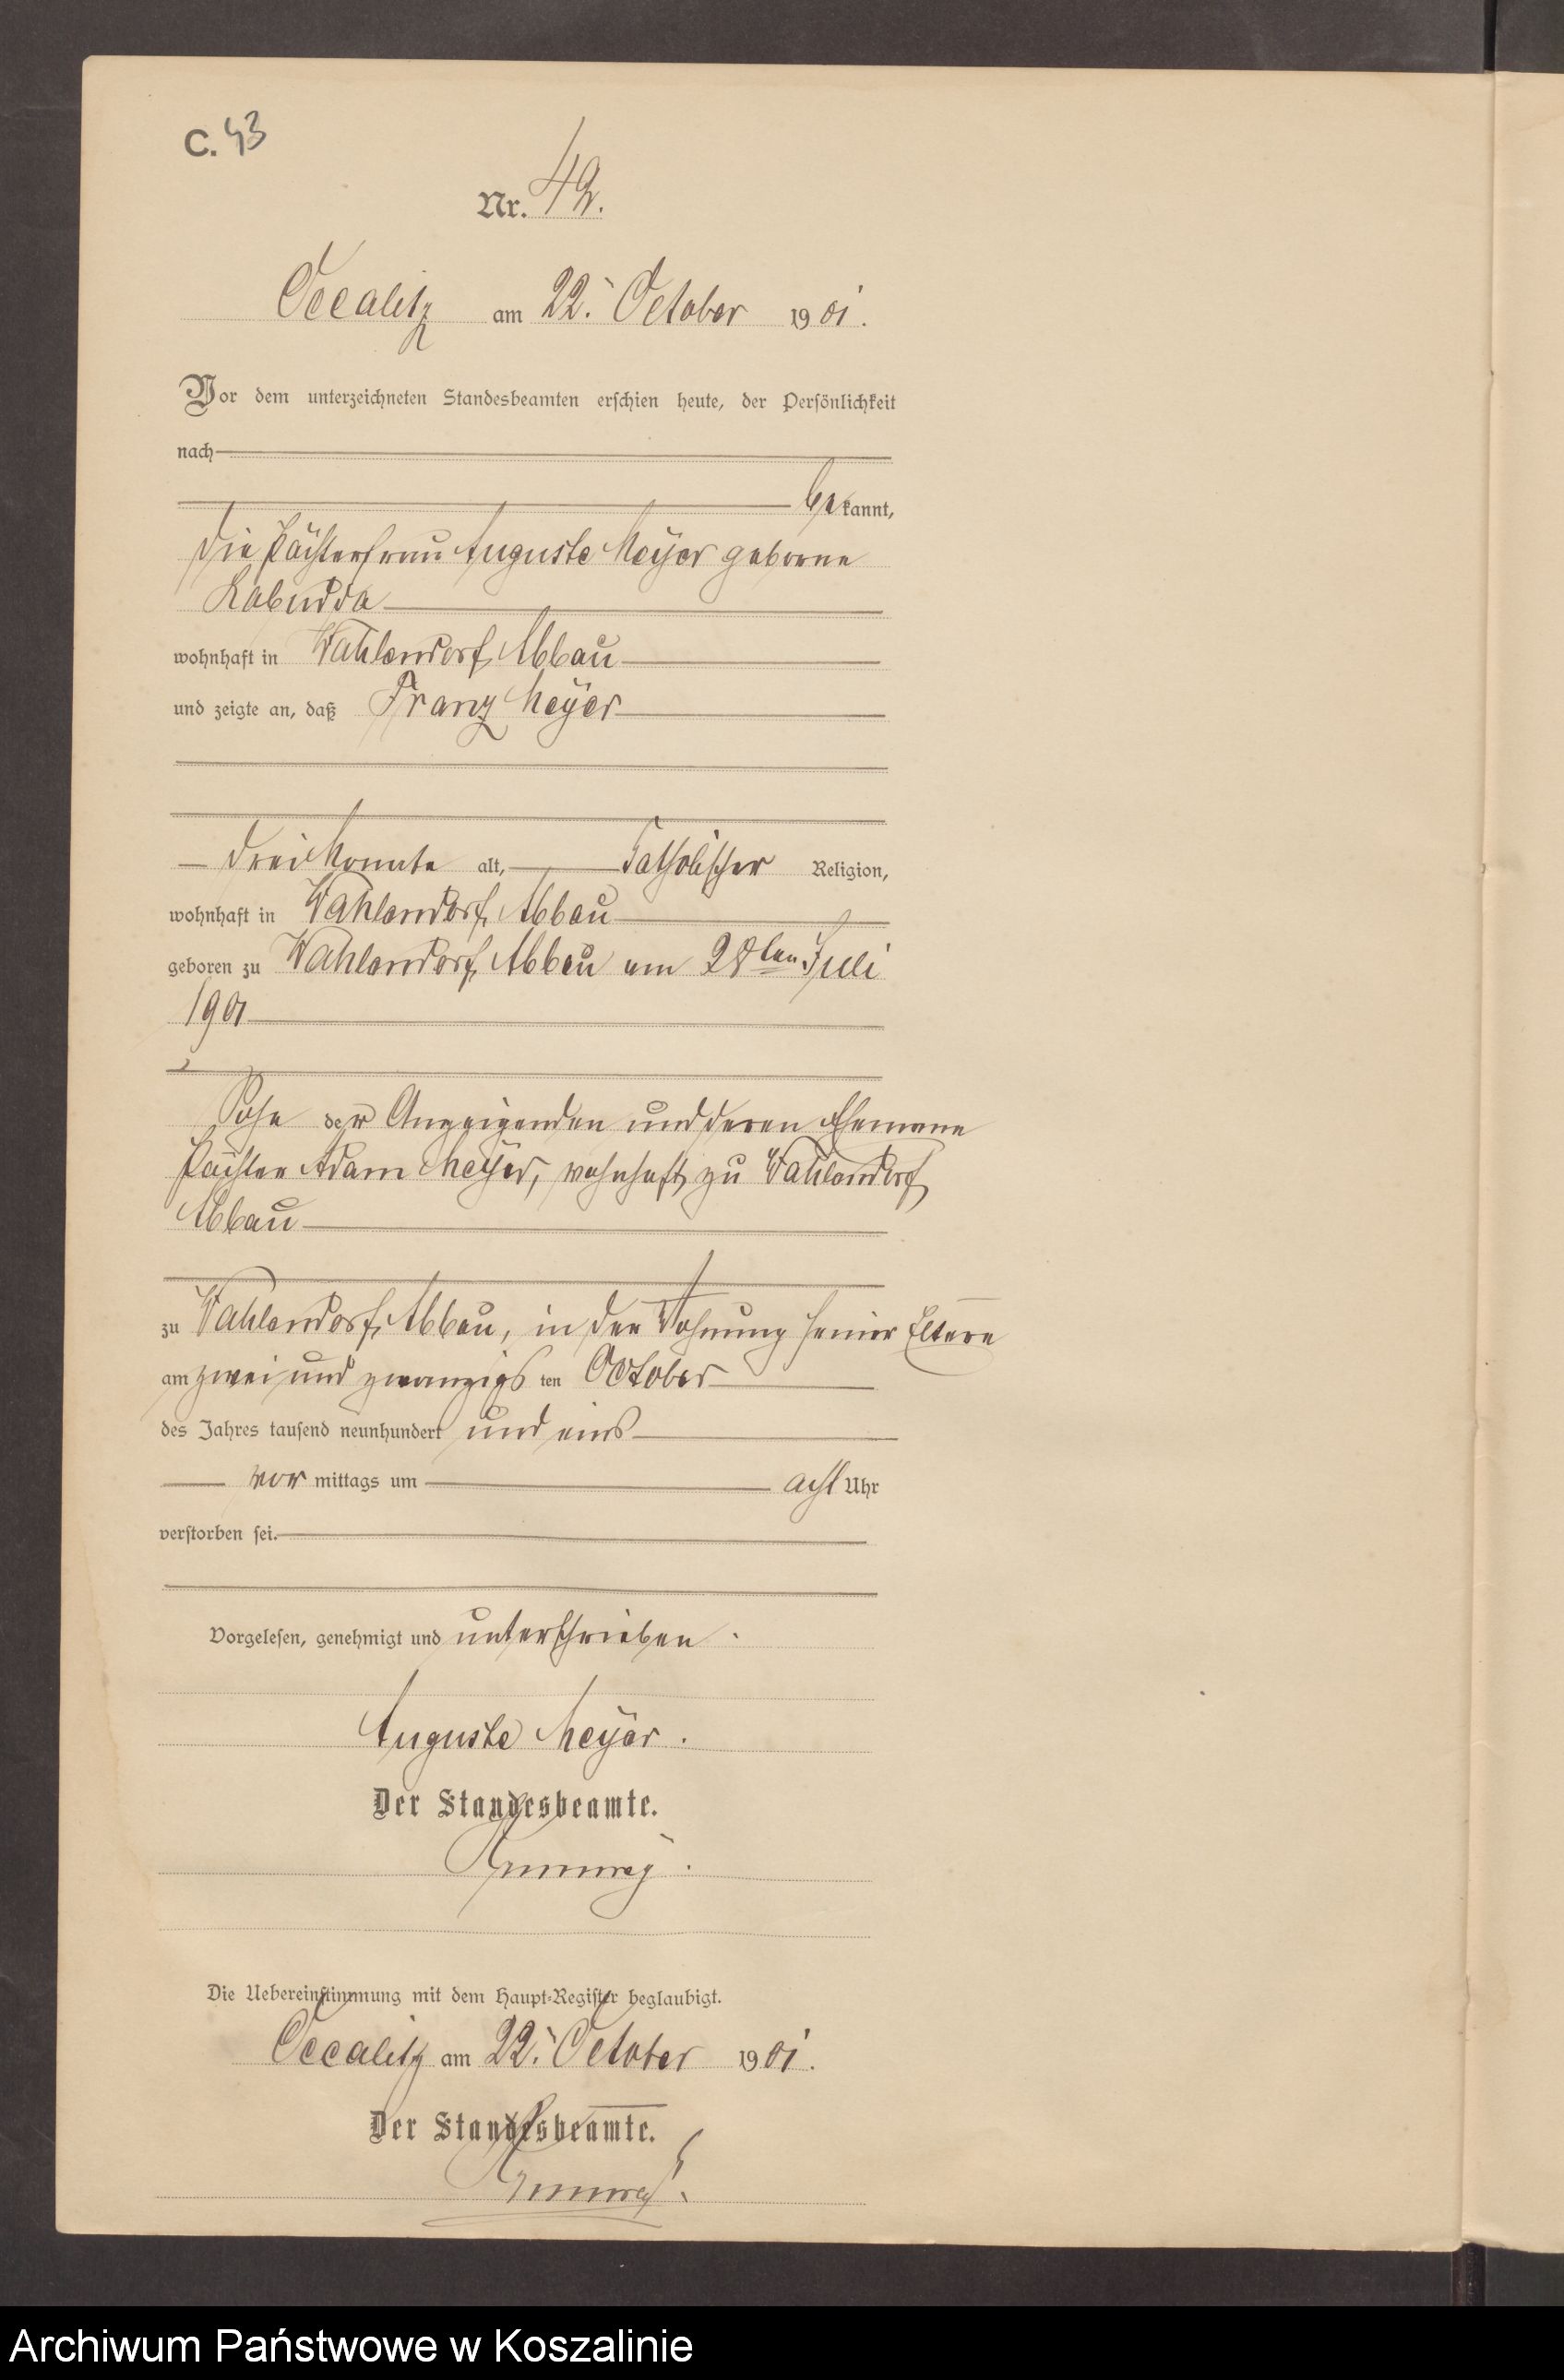 C. 43
Nr. 42.
Occalitz am 22. October 1901.
Vor dem unterzeichneten Standesbeamten erschien heute, der Persönlichkeit
nach
bekannt,
die Pächterfrau Auguste Meyer geborne
Labudda
wohnhaft in Wahlendorf, Abbau
und zeigte an, daß Franz Meyer
drei Monate alt, katholischer Religion,
wohnhaft in Wahlendorf, Abbau
geboren zu Wahlendorf, Abbau am 28ten Juli
1901
Sohn der Anzeigenden und deren Ehemann
Pächter Adam Meyer, wohnhaft zu Wahlendorf
Abbau
zu Wahlendorf, Abbau, in der Wohnung seiner Eltern
am zwei und zwanzigsten October
des Jahres tausend neunhundert und eins
vor mittags um acht Uhr
verstorben sei.
Vorgelesen, genehmigt und unterschrieben.
Auguste Meyer.
Der Standesbeamte.
Die Uebereinstimmung mit dem Haupt-Register beglaubigt.
Occalitz am 22. October 1901.
Der Standesbeamte.
Archiwum Państwowe w Koszalinie